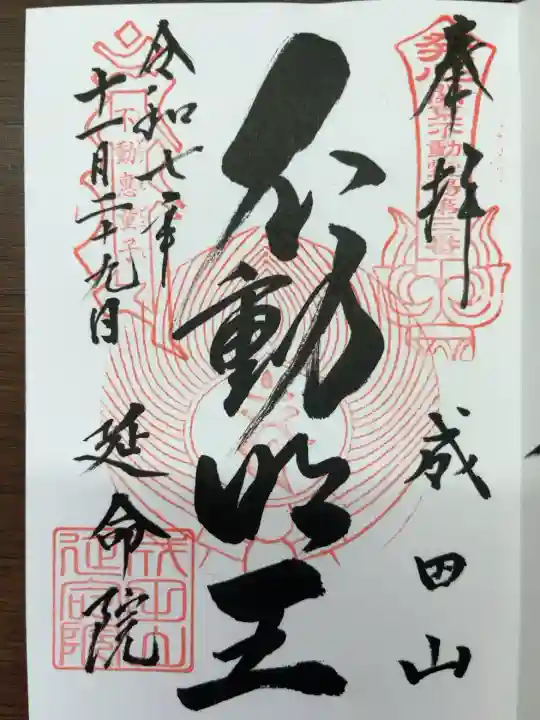 奉拝
成田山
不動明王
令和七年
十一月二十九日
延命院
不動恵童子
成田山
延命院